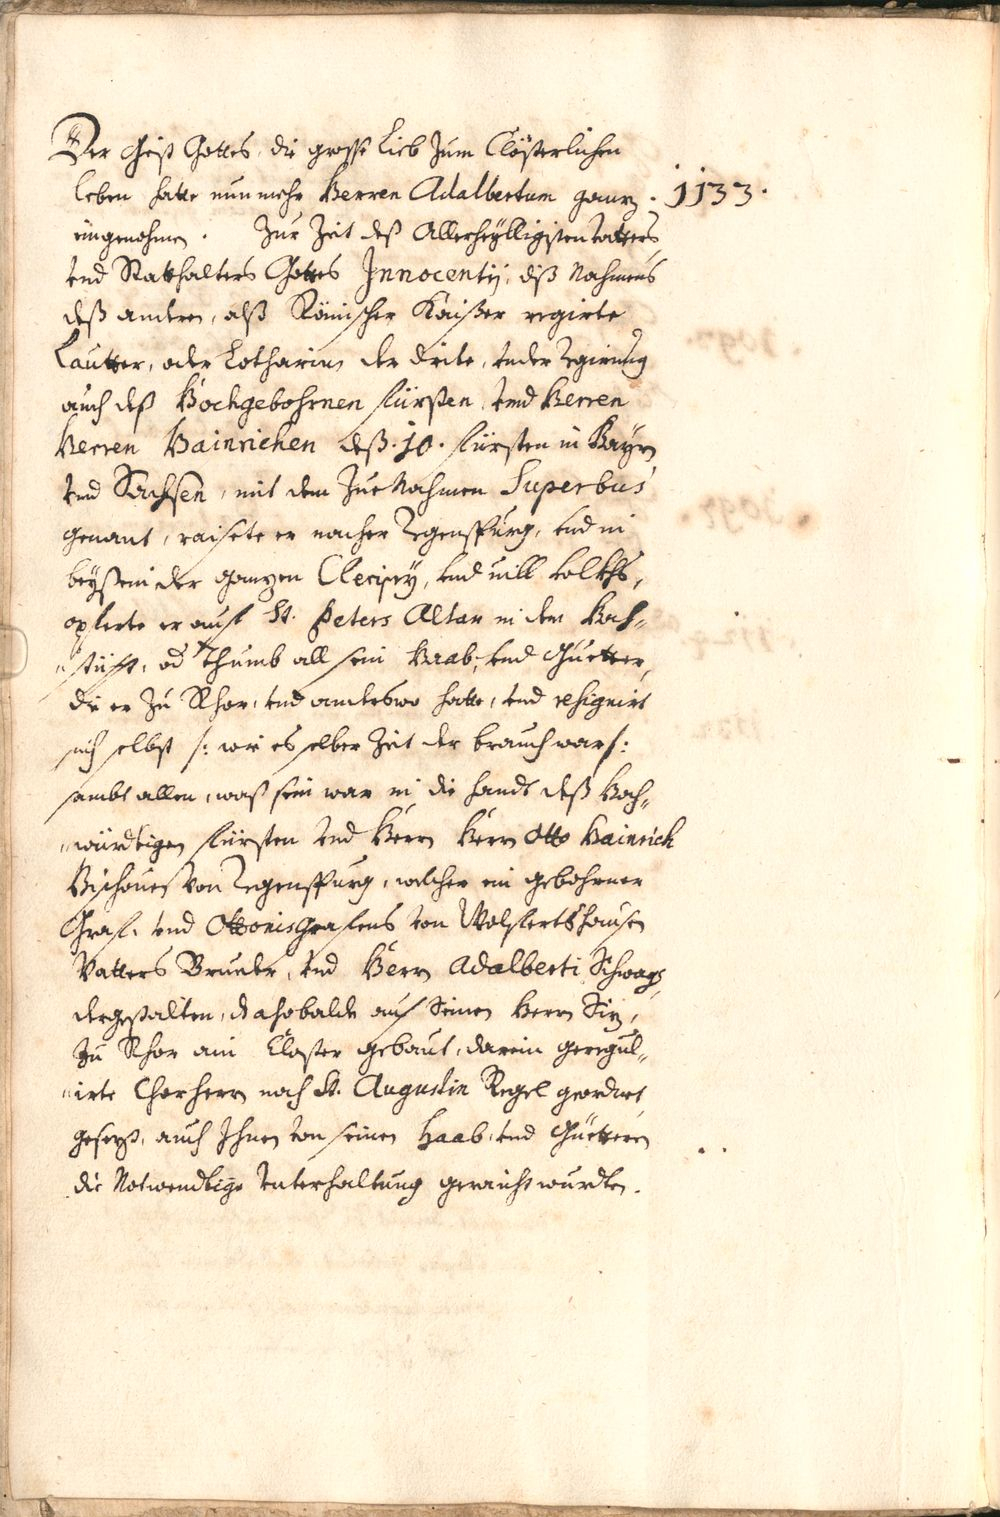 Der Geist Gottes, die grosse Lieb zum Clösterlichen
leben hatte nunmehr Herren Adalbertum ganz . 1133.
eingenohmen . Zur Zeit deß Allerheylligisten Vatters
vnd Statthalters Gottes Innocentij, diß Nahmens
deß andren, alß Römischer Kaißer regirte
Lautter, oder Lotharius der drite, vnder Regirung
auch deß Hochgebohrnen fürsten, vnd Herren
Herren Hainrichen deß .10. fürsten in Bayrn
vnd Sachsen, mit dem Zue Nahmen Superbus
genant, raisete er nacher Regenspurg, vnd in
beysein der ganzen Clerisey, vnd vill volkhs,
opferte er auf St. Peters Altar in dem Hoch„
„stüfft, od Thumb all sein Haab, vnd Guetter,
die er zu Rhor, vnd anderswo hatte, vnd resignirt
sich selbst /: wie es selber Zeit der brauch war/:
sambt allen, waß sein war in die handt deß Hoch„
„würdtigen fürsten vnd Herrn Herrn Otto Hainrich
Bischoues von Regenspurg, welcher ein gebohrner
Graf, vnd Ottonis Grafens von Wolfertshausen
Vatters Brueder, vnd Herrn Adalberti Schwager
dergestalten, daß sobaldt auf Seinen Herrn Siz,
zu Rhor ain Closter gebaut, darein geregul„
„irte Chorherrn nach St. Augustin Regel geordnet
gesezt, auch Ihnen von seinen Haab, vnd Guettern
die Notwendtige Vnterhaltung geraicht wurdten.